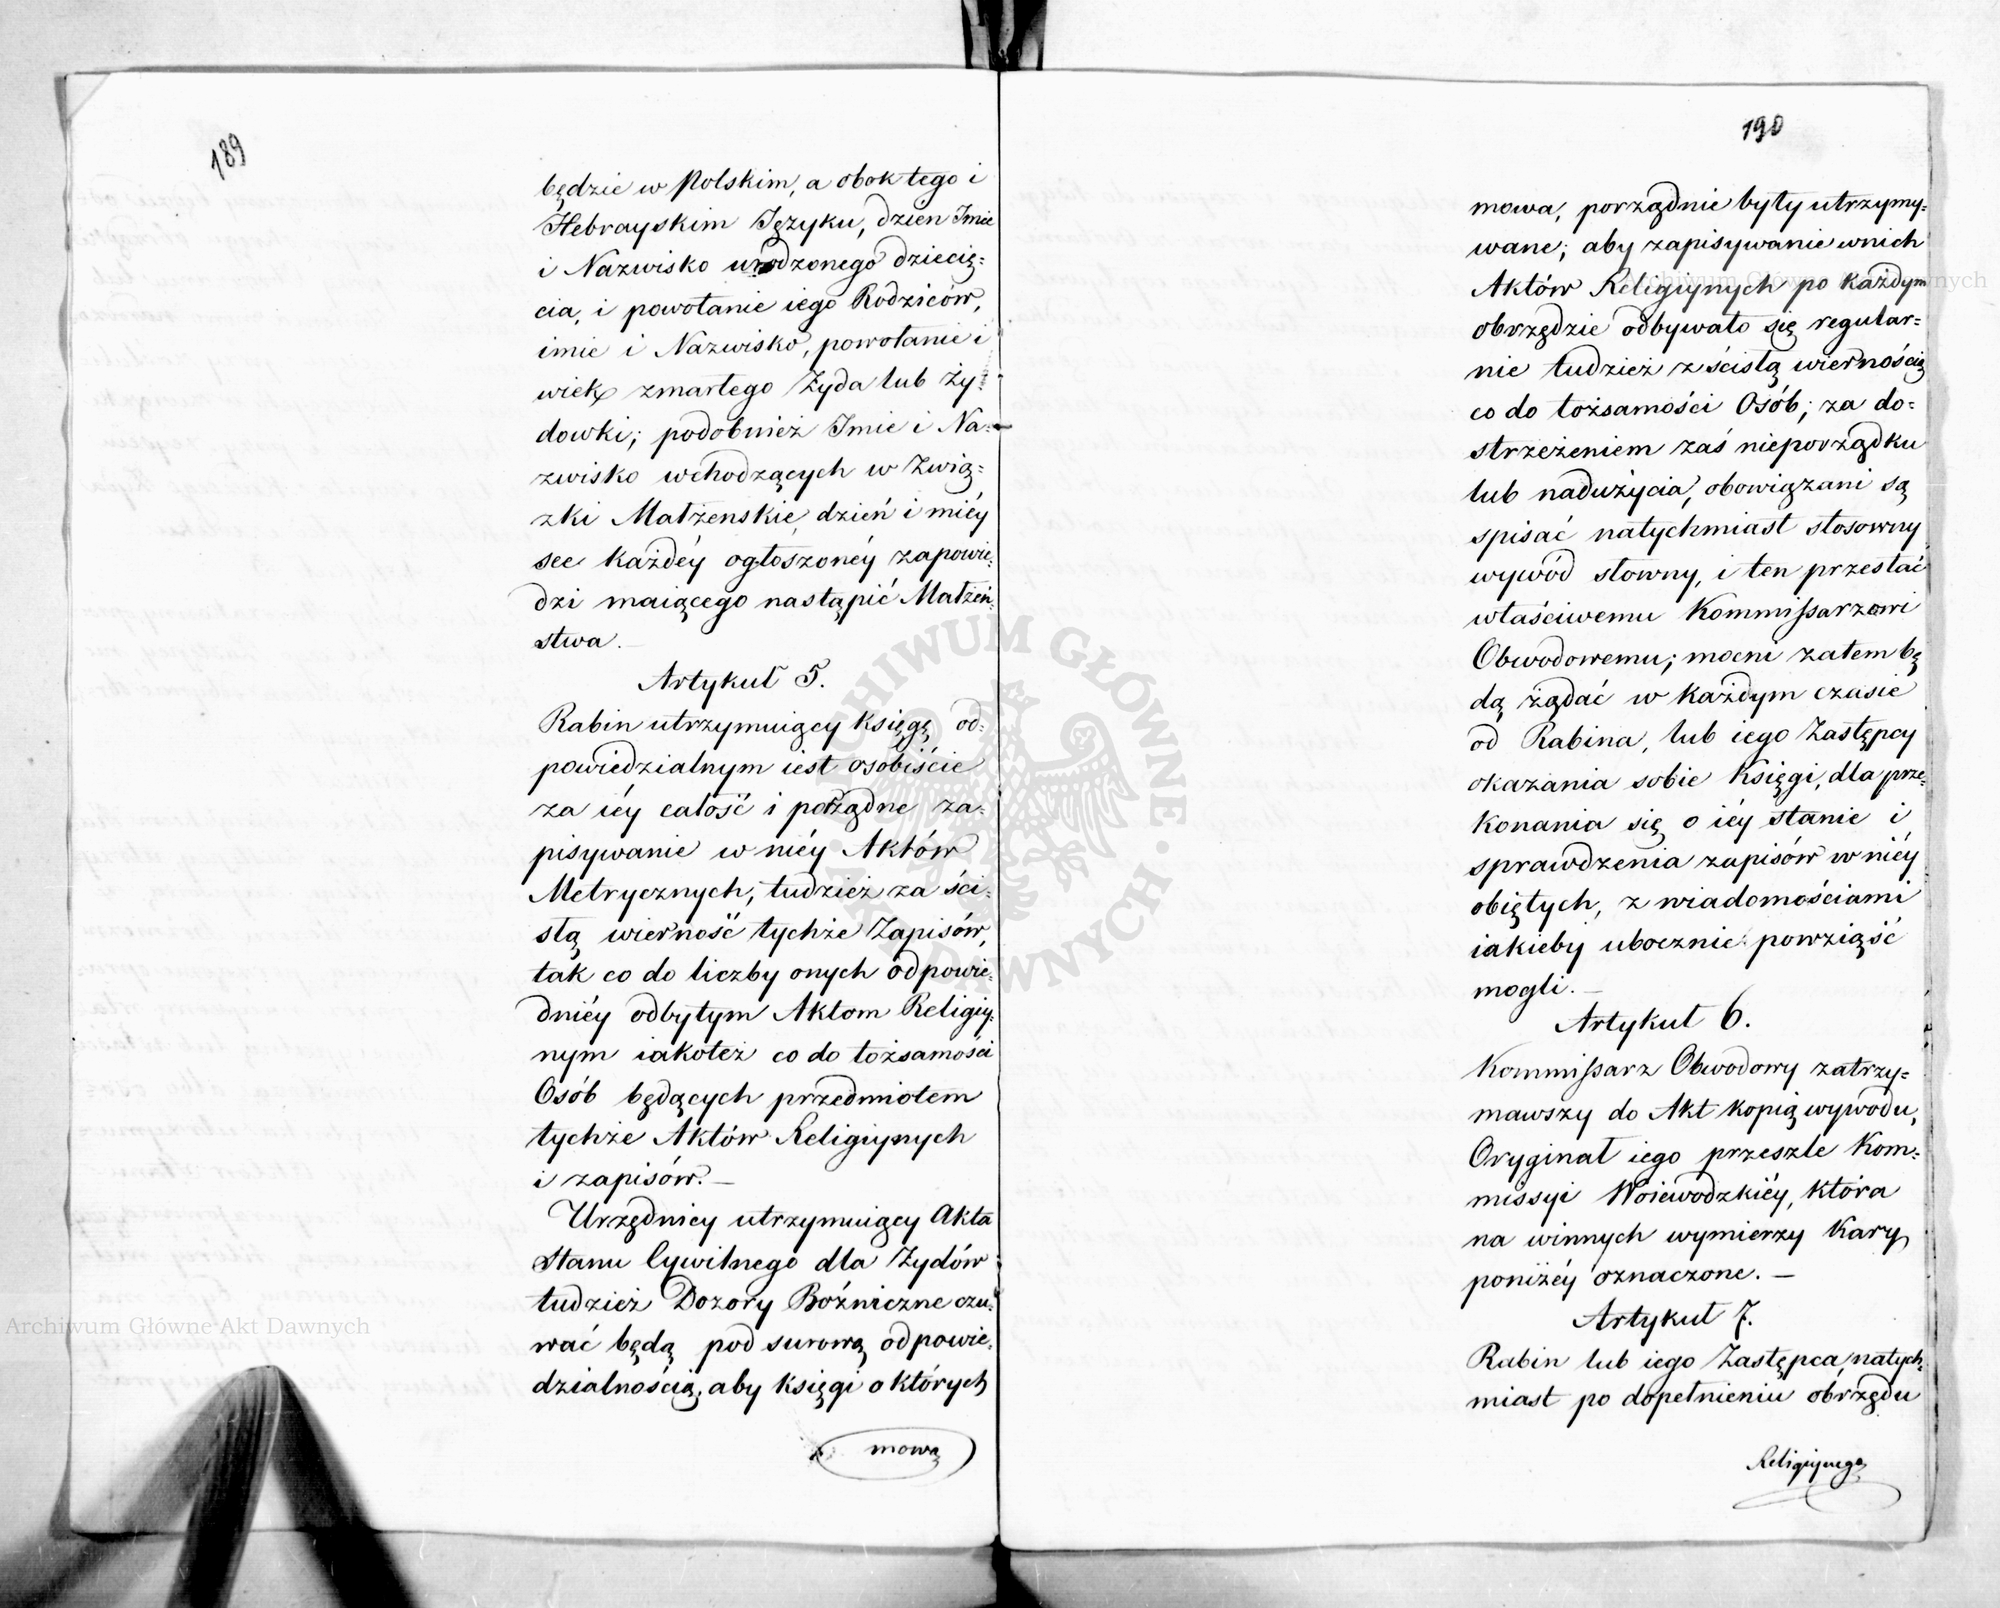 189
będzie w Polskim, a obok tego i
Hebrayskim Języku, dzien Jmie
i Nazwisko urodzonego dziecię=
cia, i powołanie iego Rodziców,
imie i Nazwisko, powołanie i
wiek zmarłego Żyda lub Ży=
dowki; podobnież Jmie i Na=
zwisko wchodzących w Zwią=
zki Małżenskie, dzień i miéy
sce każdéy ogłoszonéy zapowie=
dzi maiącego nastąpić Małżeń=
stwa.—
Artykuł 5.
Rabin utrzymuiący księgę od=
powiedzialnym iest osobiście
za iéy całość i porządne za=
pisywanie w niéy Aktów
Metrycznych, tudzież za ści=
słą wierność tychże Zapisów,
tak co do liczby onych odpowie=
dniéy odbytym Aktom Religiy=
nym iakoteż co do tożsamości
Osób będących przedmiotem
tychże Aktów Religiynych
i zapisów.—
Urzędnicy utrzymuiący Akta
Stanu Cywilnego dla Żydów
tudzież Dozory Bóźniczne czu=
wać będą pod surową odpowie=
dzialnością, aby księgi o których
mowa
190
mowa, porządnie były utrzymy=
wane; aby zapisywanie wnich
Aktów Religiynych po każdym
obrzędzie odbywało się regular=
nie tudzież z ścisłą wiernością
co do tożsamości Osób; za do=
strzeżeniem zaś nieporządku
lub nadużycia, obowiązani są
spisać natychmiast stosowny
wywód słowny, i ten przesłać
właściwemu Kommissarzowi
Obwodowemu; mocni zatem bę
dą żądać w każdym czasie
od Rabina, lub iego Zastępcy
okazania sobie Księgi, dla prze=
konania się o iéy stanie i
sprawdzenia zapisów w niéy
obiętych, z wiadomościami
iakieby ubocznie powziąść
mogli.—
Artykuł 6.
Kommissarz Obwodowy zatrzy=
mawszy do Akt kopią wywodu,
Oryginał iego przeszle Kom=
missyi Woiewodzkiéy, która
na winnych wymierzy Kary
poniżéy oznaczone.—
Artykuł 7.
Rabin lub iego Zastępca, natych=
miast po dopełnieniu obrzędu
Religiynego
Archiwum Główne Akt Dawnych
Archiwum Główne Akt Dawnych
ARCHIWUM GŁÓWNE · AKT DAWNYCH ·